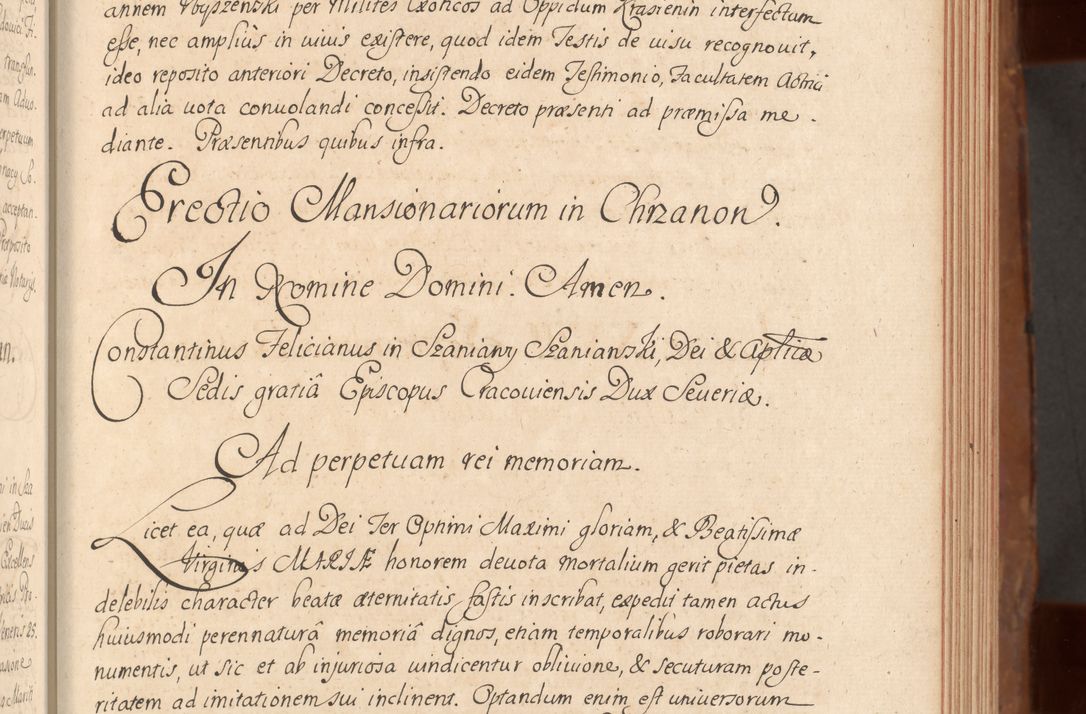 annem Zbyszenski per Milites Saxoncos ad Oppidum Krasienin interfectum
esse, nec amplius in uiuis existere, quod idem Testis de uisu recognouit,
ideo reposito anteriori Decreto, insistendo eidem Testimonio, Facultatem Actrici
ad alia uota conuolandi concessit. Decreto præsenti ad præmissa me .
diante. Præsentibus quibus infra.
Erectio Mansionariorum in Chrzanon.
In Nomine Domini. Amen.
Constantinus Felicianus in Szaniawy Szanianski, Dei & Aplicæ
Sedis gratiâ Episcopus Cracouiensis Dux Seueriæ.
Ad perpetuam rei memoriam.
Licet ea, quæ ad Dei Ter Optimi Maximi gloriam, & Beatissimæ
Virginis MARIÆ honorem deuota mortalium gerit pietas in-
delebilis character beatæ æternitatis fastis inscribat, expedit tamen actus
huiusmodi perennaturâ memoriâ dignos, etiam temporalibus roborari mo-
numentis, ut sic et ab injuriosa uindicentur obliuione, & secuturam poste-
ritatem ad imitationem sui inclinent. Optandum enim est universorum